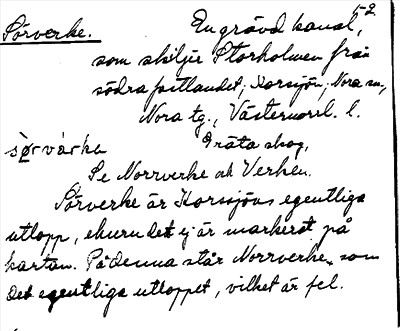 52
Sörverke. En grävd kanal,
som skiljer Storholmen från
södra fastlandet, Norsjön, Nora sn,
Nora tg., Västernorrl. l.
sø̀rvàrka Träta skog.
Se Norrverke och Verken.
Sörverke är Norsjöns egentliga
utlopp, ehuru det ej är markerat på
kartan. På denna står Norrverke som
det egentliga utloppet, vilket är fel.